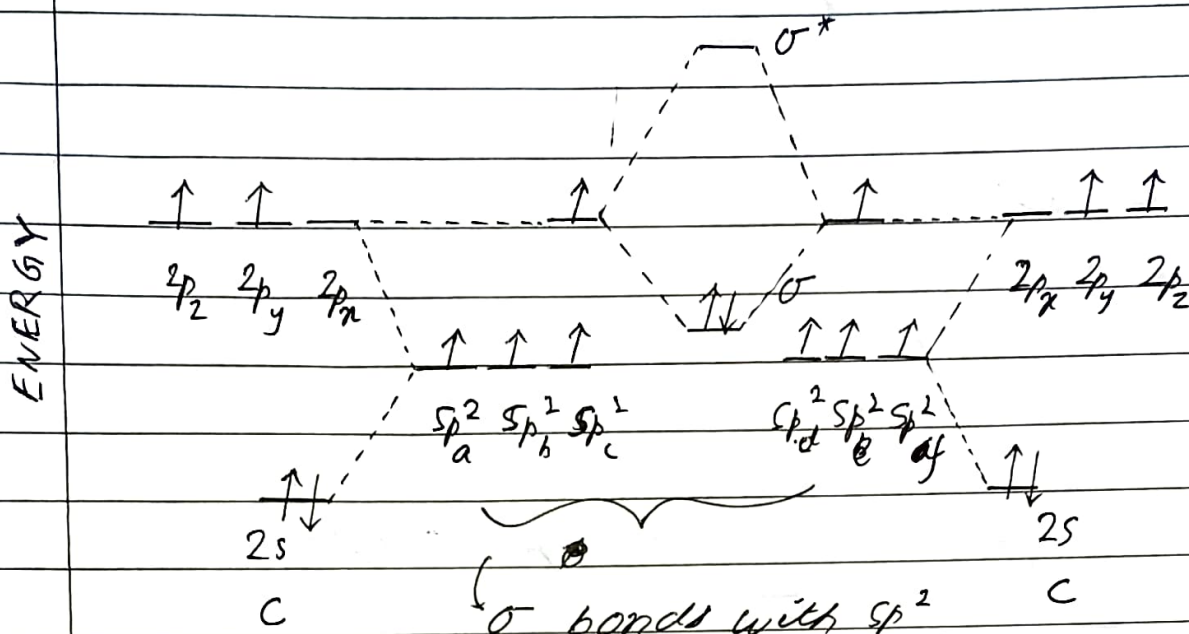 σ*
ENERGY
2pz 2py 2px
σ
2px 2py 2pz
sp²a sp²b sp²c
sp²d sp²e sp²f
2s
2s
C
C
σ bonds with sp²